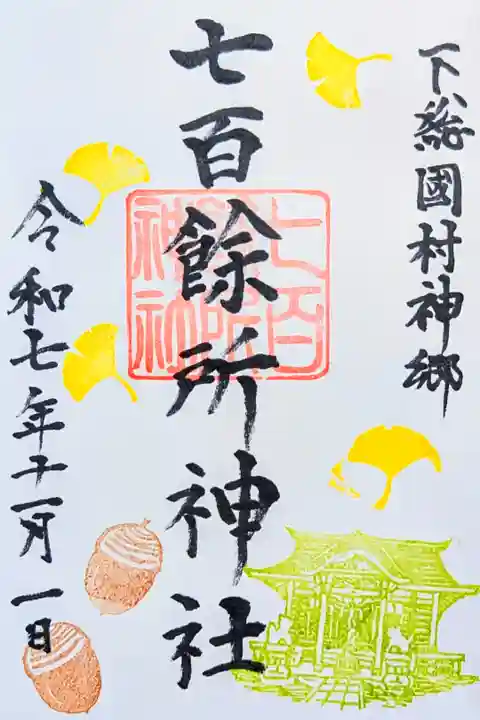 下総國村神郷
七百餘所神社
七百
神社
令和七年十一月一日